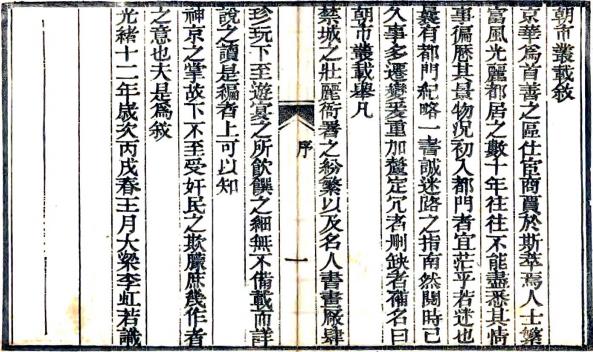 朝市叢載敘
京華爲首善之區仕宦商賈於斯萃焉人士繁
富風光麗都居之數十年往往不能盡悉其情
事徧歷其景物況初入都門者宜茫乎若迷也
曩有都門紀略一書誠迷路之指南然閱時已
久事多遷變爰重加釐定冗者刪缺者補名曰
朝市叢載舉凡
序
一
禁城之壯麗衙署之紛繁以及名人書畫厰肆
珍玩下至遊宴之所飲饌之細無不備載而詳
說之讀是編者上可以知
神京之掌故下不至受奸民之欺朦庶幾作者
之意也夫是爲敘
光緒十二年歲次丙戌春王月大梁李虹若識